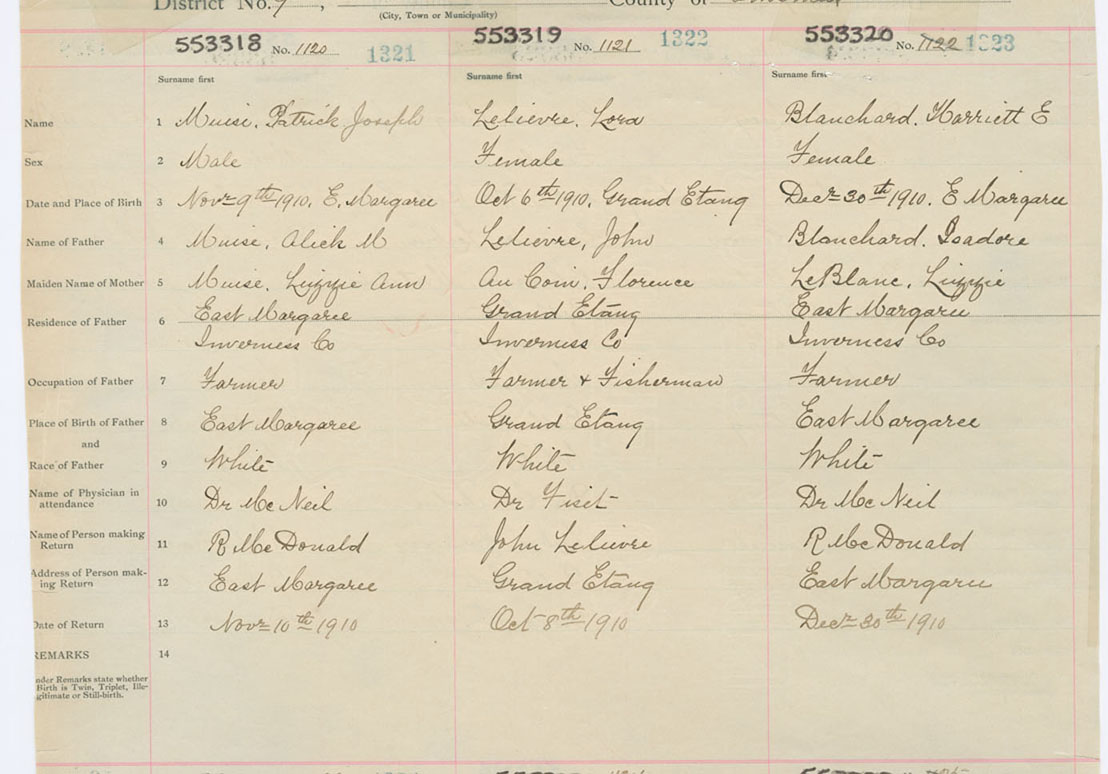 District No. 7, County of
(City, Town or Municipality)
553318 No. 1120 1321 553319 No. 1121 1322 553320 No. 1122 1323
Surname first Surname first Surname first
Name 1 Muise, Patrick Joseph Lelievre, Lora Blanchard, Harriett E
Sex 2 Male Female Female
Date and Place of Birth 3 Novr 9th 1910, E. Margaree Oct 6th 1910, Grand Etang Decr 30th 1910, E Margaree
Name of Father 4 Muise, Alick M Lelievre, John Blanchard, Isadore
Maiden Name of Mother 5 Muise, Lizzie Ann Au Coin, Florence LeBlanc, Lizzie
Residence of Father 6 East Margaree Grand Etang East Margaree
Inverness Co Inverness Co Inverness Co
Occupation of Father 7 Farmer Farmer & Fisherman Farmer
Place of Birth of Father 8 East Margaree Grand Etang East Margaree
and
Race of Father 9 White White White
Name of Physician in
attendance 10 Dr McNeil Dr Fiset Dr McNeil
Name of Person making
Return 11 R McDonald John Lelievre R McDonald
Address of Person mak-
ing Return 12 East Margaree Grand Etang East Margaree
Date of Return 13 Novr 10th 1910 Oct 8th 1910 Decr 30th 1910
REMARKS 14
nder Remarks state whether
Birth is Twin, Triplet, Ille-
gitimate or Still-birth.